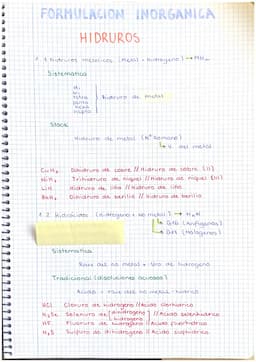 FORMULACION INORGANICA
HIDRUROS
1.1 Hidruros metálicos (Metal + hidrogeno) → MHn
Sistematica
di
tri
tetra
penta
hexa
hepta
hidruro de metal
Stock
Hidruro de metal (nº romano)
↳ V. del metal
CuH₂ Dihidruro de cobre // Hidruro de cobre (II)
NiH₃ Trihidruro de niquel // Hidruro de niquel (III)
LiH Hidruro de litio // Hidruro de litio
BeH₂ Dihidruro de berilio // Hidruro de berilio
1.2 Hidracidos (hidrogeno + no metal) → HnN
↳ G16 (Anfigenos)
↳ G17 (Halogenos)
Sistematica
Raiz del no metal + uro de hidrogeno
Tradicional (disoluciones acuosas)
Acido + raiz del no metal - hidrico
HCl Cloruro de hidrogeno // Acido clorhidrico
H₂Se Selenuro de dihidrogeno // Acido selenhidrico
hidrogeno
HF Fluoruro de hidrogeno // Acido fluorhidrico
H₂S Sulfuro de dihidrogeno // Acido sulfhidrico